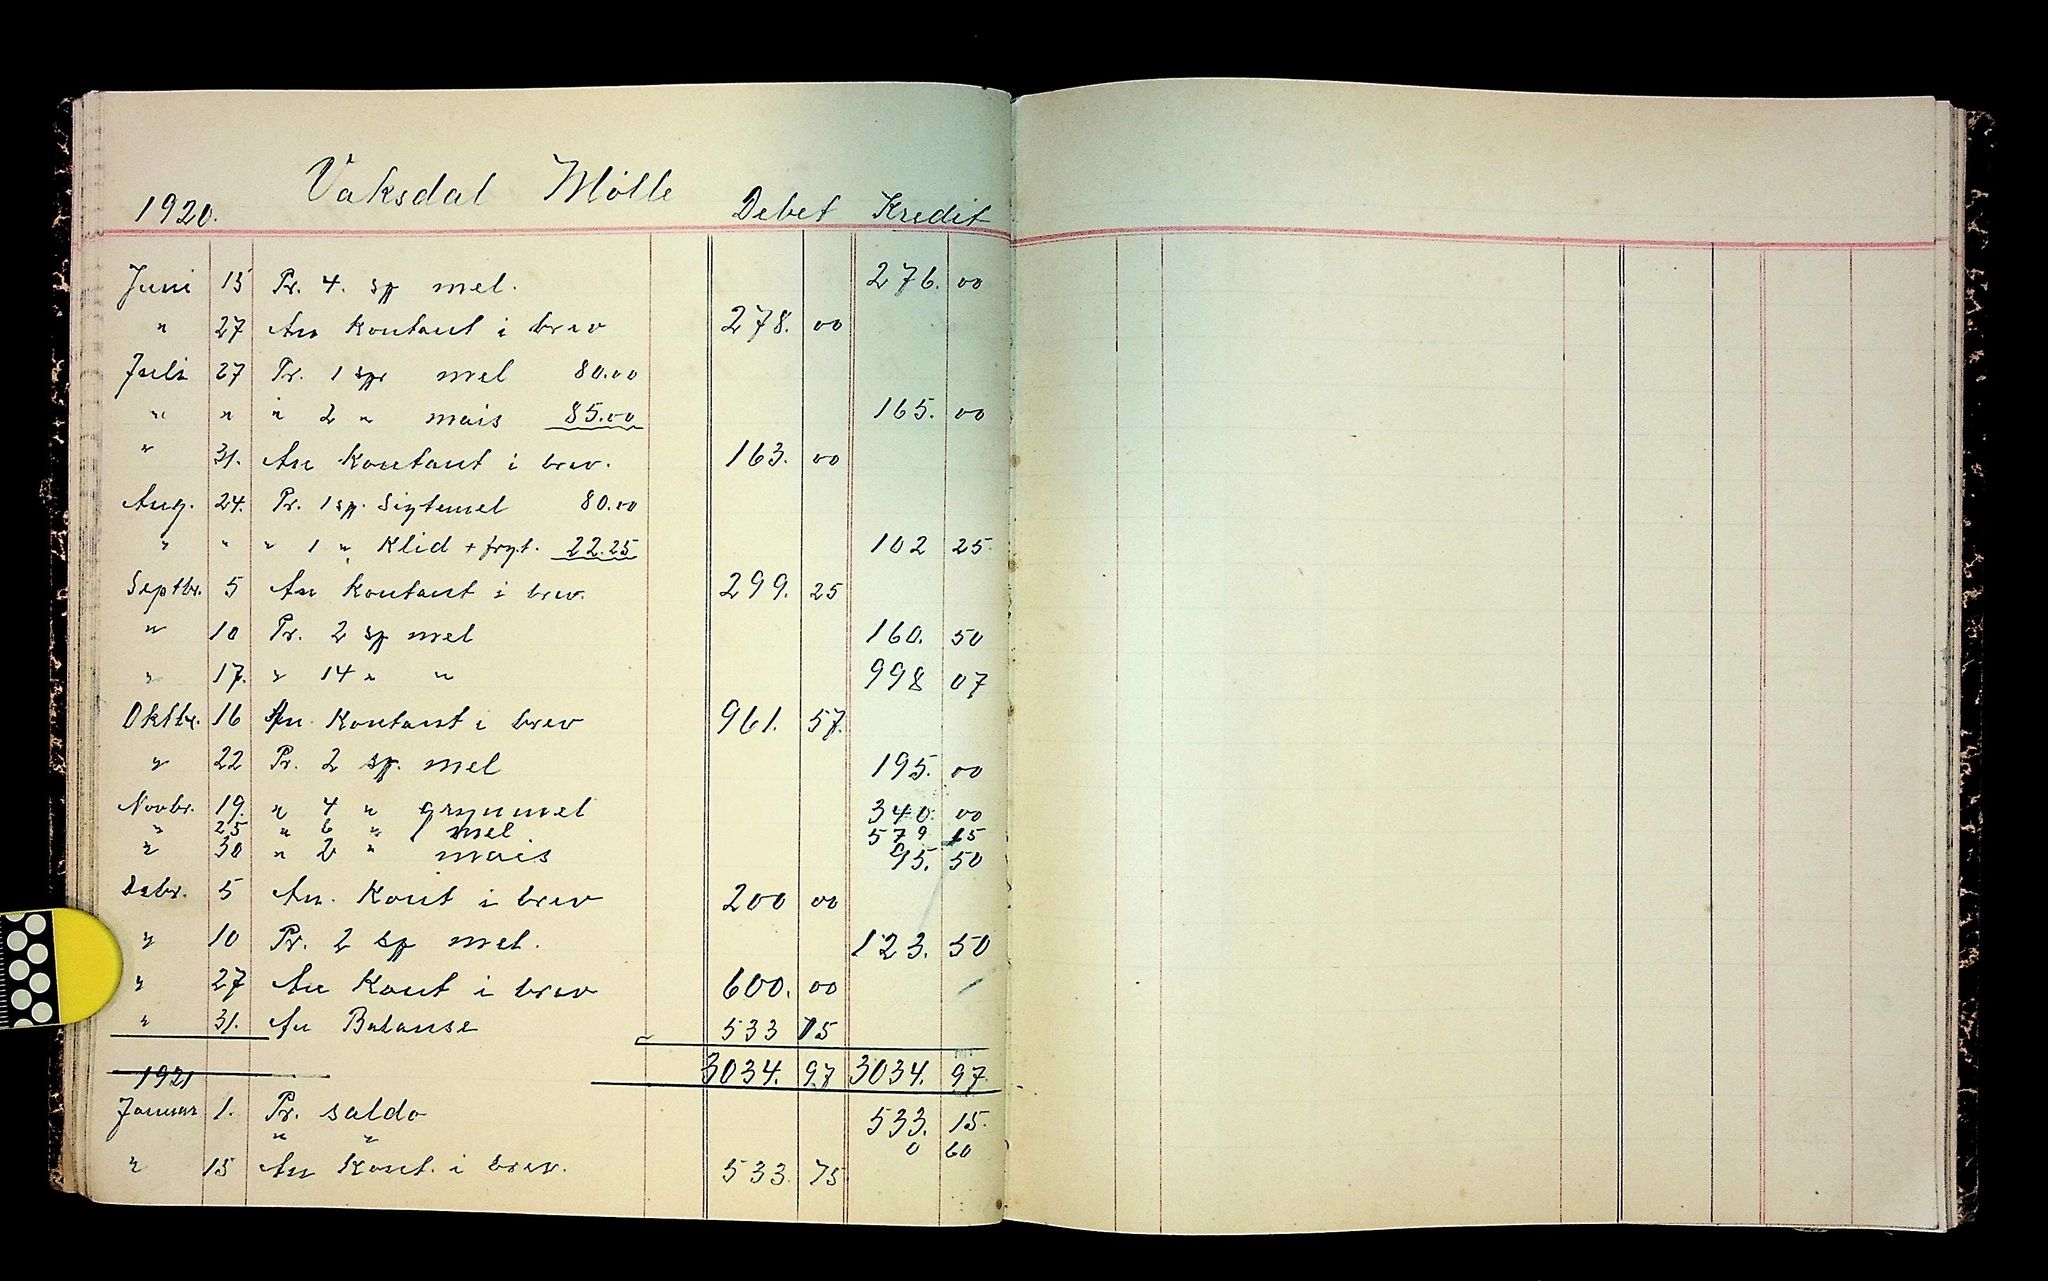 1920. Vaksdal Mölle Debet Kredit
Juni 15 Pr. 4. sp mel. 276. 00
" 27 An Kontant i brev 278. 00
Juli 27 Pr. 1 sp mel 80.00
" " " 2 " mais 85.00 165. 00
" 31. An Kontant i brev. 163. 00
Aug. 24. Pr. 1 sp. Sigtemel 80.00
" " " 1 " Klid + frgt. 22.25 102 25
Septbr. 5 An Kontant i brev. 299. 25
" 10 Pr. 2 sp mel 160. 50
" 17. " 14 " " 998 07
Oktbr. 16 An. Kontant i brev 961. 57.
" 22 Pr. 2 sp. mel 195. 00
Novbr. 19. " 4 " grynmel 340. 00
" 25 " 6 " mel 579 15
" 30 " 2 " mais 95. 50
Debr. 5 An. Kont i brev 200 00
" 10 Pr. 2 sp mel. 123. 50
" 27 An Kont i brev 600. 00
" 31. An Balanse 533 15
3034. 97 3034. 97
1921
Januar 1. Pr. saldo 533. 15
" " 0 60
" 15 An Kont. i brev. 533. 75